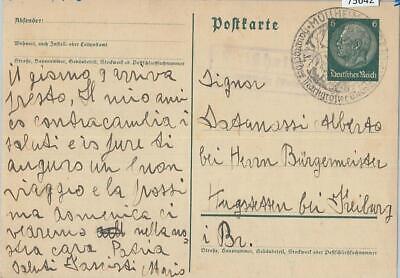 75042
Absender:
Wohnort, auch Zustell- oder Leitpostamt
Straße, Hausnummer, Gebäudeteil, Stockwerk od. Postschließfachnummer
il giorno 9 arriva
presto, Il mio ami
co contracambia i
saluti e io pure ti
auguro un buon
viaggio e la prossi
ma domenica ci
vedremo nella no
stra cara Patria
Saluti Mario
Postkarte
MÜLLHEIM
6 6
Deutsches Reich
Signor
Alberto
bei Herrn Bürgermeister
bei Freiburg
i Br.
Straße, Hausnummer, Gebäudeteil, Stockwerk oder Postschließfachnummer